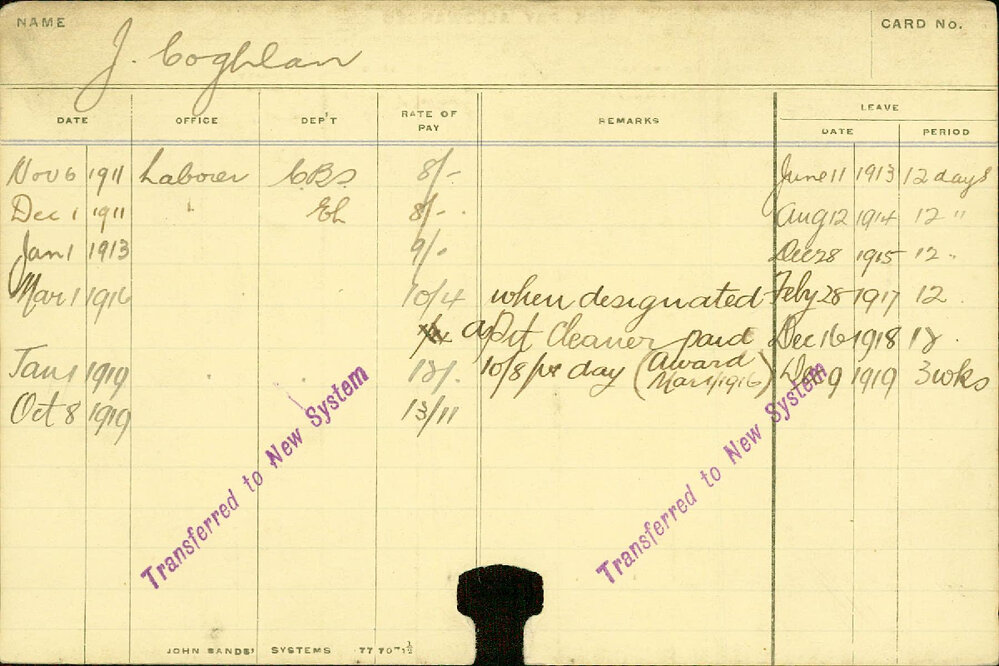 NAME J. Coghlan CARD No.
DATE OFFICE DEP'T RATE OF PAY REMARKS LEAVE
DATE PERIOD
Nov 6 1911 Laborer CBS 8/- June 11 1913 12 days
Dec 1 1911 " EL 8/- Aug 12 1914 12 "
Jan 1 1913 9/- Dec 28 1915 12 "
Mar 1 1916 10/4 when designated Feby 28 1917 12
a Pit Cleaner paid Dec 16 1918 12
Jan 1 1919 12/- 10/8 per day (Award Mar 1/1916) Dec 9 1919 3 wks
Oct 8 1919 13/11
Transferred to New System
Transferred to New System
JOHN SANDS' SYSTEMS 77 70-1½